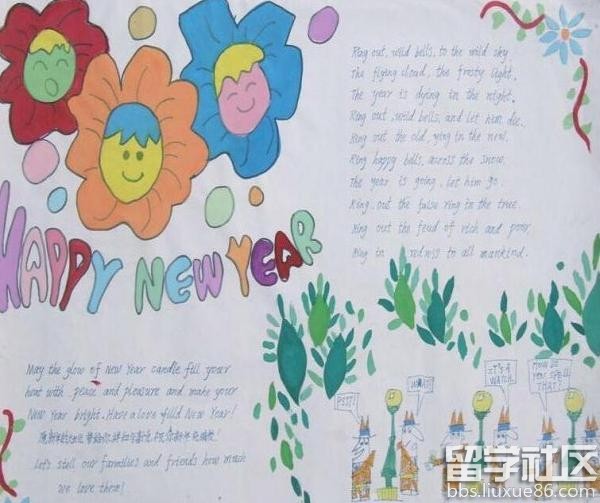 HAPPY NEW YEAR
Ring out, wild bells, to the wild sky
The flying cloud, the frosty light.
The year is dying in the night.
Ring out, wild bells, and let him die.
Ring out the old, ying in the new.
Ring happy bells, across the snow.
The year is going, let him go.
Ring out the false ring in the true.
Ring out the feud of rich and poor,
Ring in redress to all mankind.
May the glow of New Year candle fill your
heat with peace and pleasure and make your
New Year bright. Have a love filld New Year!
愿新年的
Let's stell our framilies and friends how much
we love them!
PSST!
WHAT?
IT'S A WATCH.
HOW DO YOU SPELL THAT?
留学社区
bbs.liuxue86.com